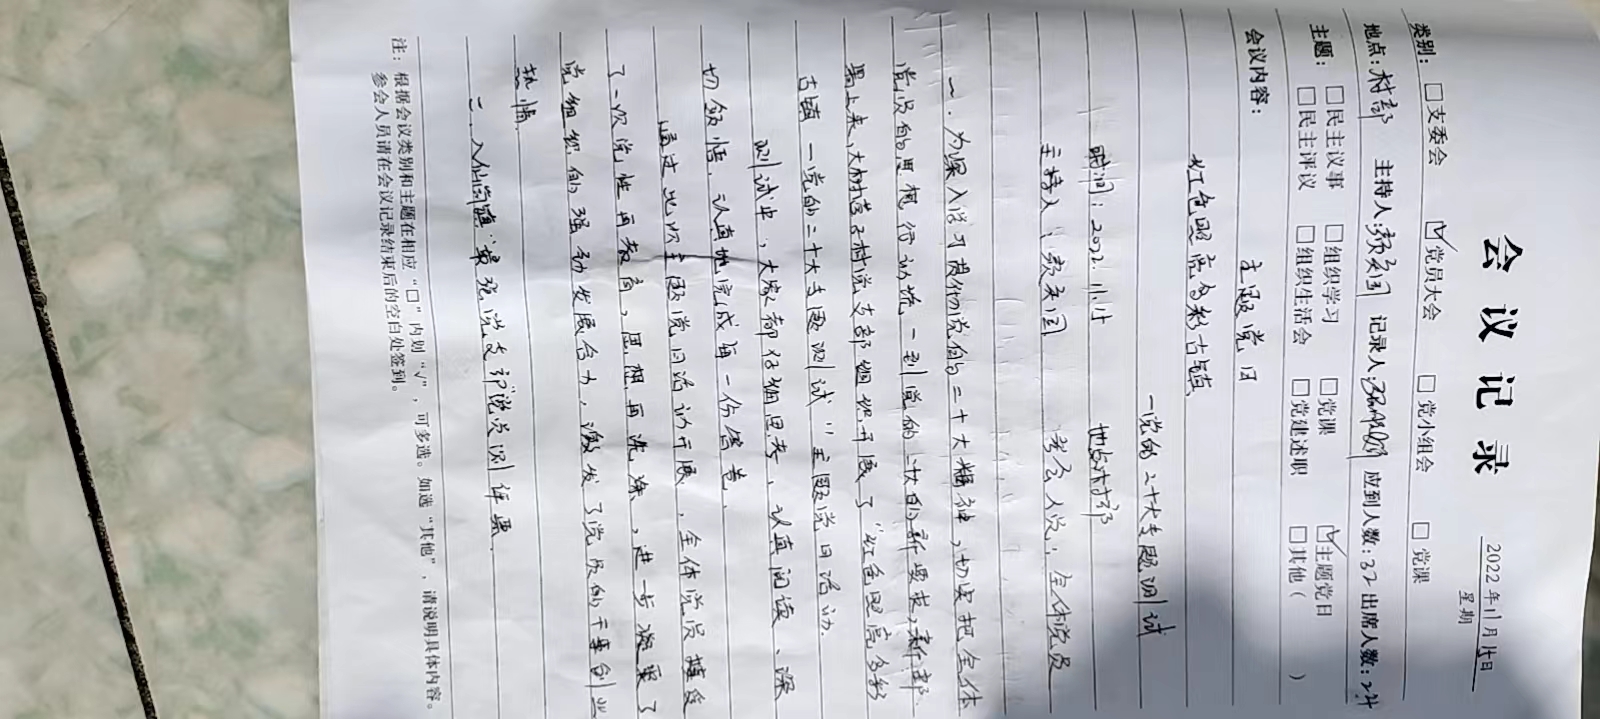 会 议 记 录
2022 年 11 月 15 日
星 期
类别： □支委会 ☑党员大会 □党小组会 □党课
地点：村部 主持人： 记录人： 应到人数：32 出席人数：24
主题： □民主议事 □组织学习 □党课 ☑主题党日
□民主评议 □组织生活会 □党建述职 □其他（ ）
会议内容： 主题党日
红色照亮多彩古镇
—党的二十大专题测试
时间：2022.11.15 地点村部
主持人： 参会人员：全体党员
一、为深入学习贯彻党的二十大精神，切实把全体
党员的思想行动统一到党的二十大的新要求，新部
署上来，大树营子村党支部组织开展了“红色照亮多彩
古镇—党的二十大专题测试”主题党日活动.
测试中，大家都仔细思考、认真阅读、深
切领悟，认真地完成每一份答卷.
通过此次主题党日活动开展，全体党员接受
了一次党性再教育，思想再洗涤，进一步凝聚了
党组织的强劲发展合力，激发了党员的干事创业
热情.
二、 “最强党支部”党员测评票.
注：根据会议类别和主题在相应“□”内划“√”，可多选。如选“其他”，请说明具体内容。
参会人员请在会议记录结束后的空白处签到。